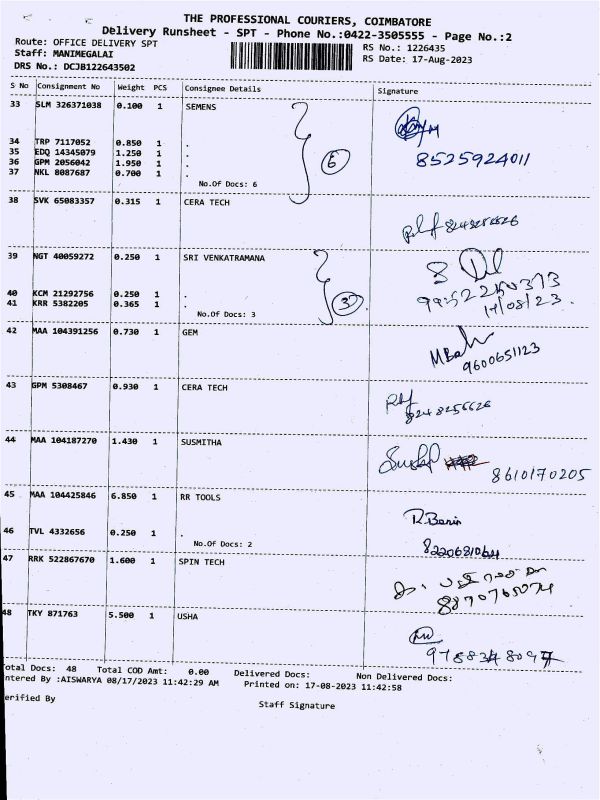 THE PROFESSIONAL COURIERS, COIMBATORE
Delivery Runsheet - SPT - Phone No.:0422-3505555 - Page No.:2
Route: OFFICE DELIVERY SPT
RS No.: 1226435
Staff: MANIMEGALAI
RS Date: 17-Aug-2023
DRS No.: DCJB122643502
S No Consignment No Weight PCS Consignee Details Signature
33 SLM 326371038 0.100 1 SEMENS
34 TRP 7117052 0.850 1 .
35 EDQ 14345079 1.250 1 .
36 GPM 2056042 1.950 1 .
37 NKL 8087687 0.700 1 .
6
8525924011
No.Of Docs: 6
38 SVK 65083357 0.315 1 CERA TECH
39 NGT 40059272 0.250 1 SRI VENKATRAMANA
40 KCM 21292756 0.250 1 .
41 KRR 5382205 0.365 1 .
3
17/08/23.
No.Of Docs: 3
42 MAA 104391256 0.730 1 GEM
9600651123
43 GPM 5308467 0.930 1 CERA TECH
8248256626
44 MAA 104187270 1.430 1 SUSMITHA
8610170205
45 MAA 104425846 6.850 1 RR TOOLS
46 TVL 4332656 0.250 1 .
No.Of Docs: 2
47 RRK 522867670 1.600 1 SPIN TECH
8870765074
48 TKY 871763 5.500 1 USHA
otal Docs: 48 Total COD Amt: 0.00 Delivered Docs: Non Delivered Docs:
ntered By :AISWARYA 08/17/2023 11:42:29 AM Printed on: 17-08-2023 11:42:58
erified By
Staff Signature